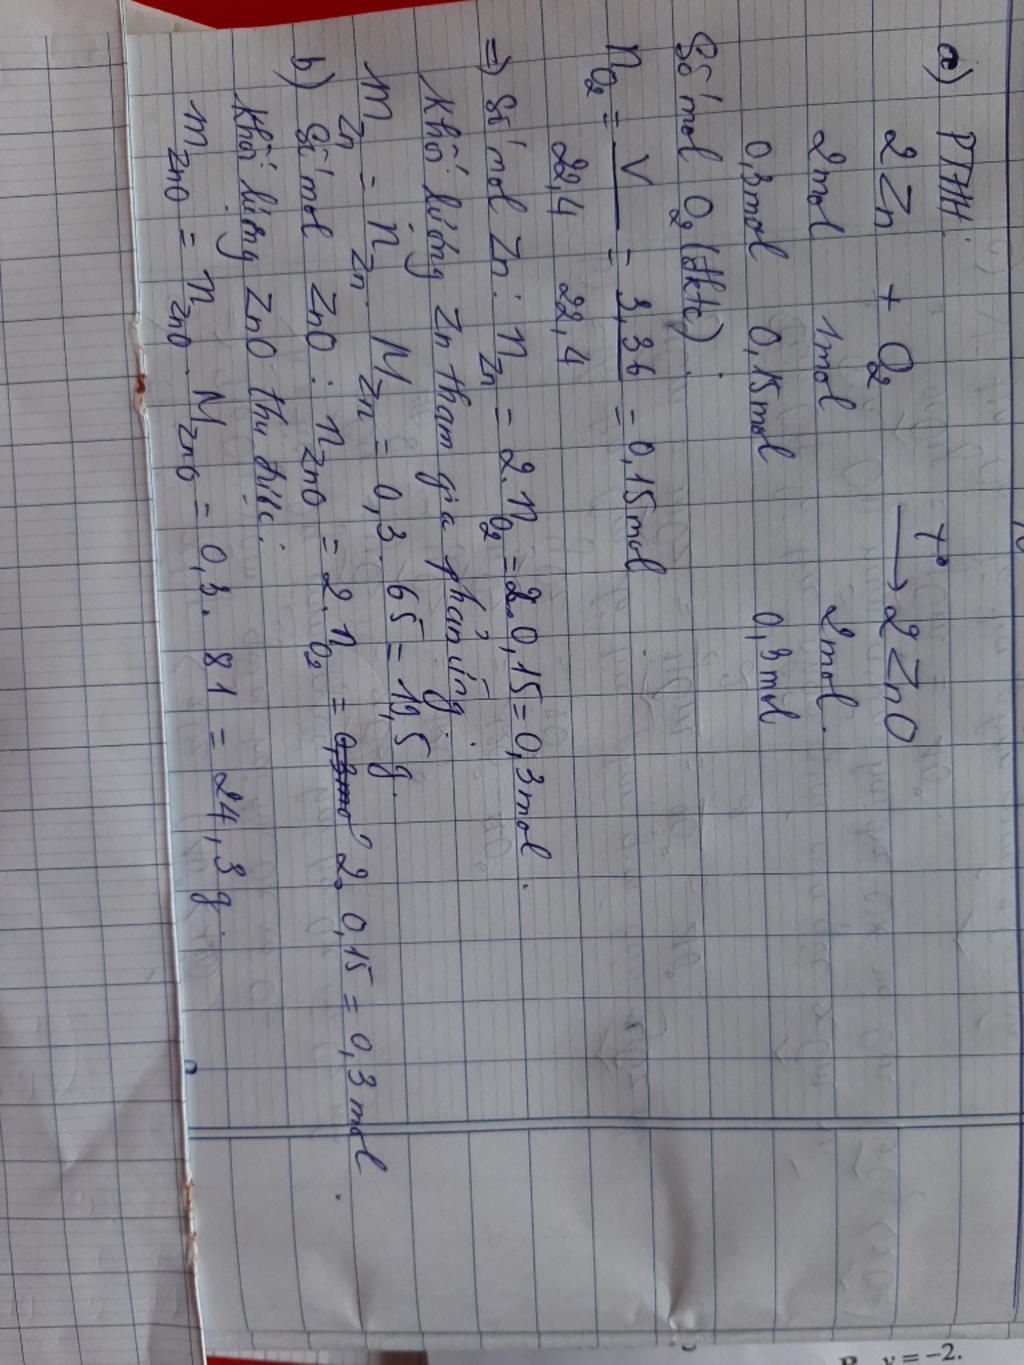 a) PTHH:
2 Zn + O₂ —t°→ 2 ZnO
2mol 1mol 2mol.
0,3mol 0,15mol 0,3mol
Số mol O₂ (đktc):
n O₂ = V/22,4 = 3,36/22,4 = 0,15mol
=) Số mol Zn: n Zn = 2. n O₂ = 2. 0,15 = 0,3mol.
Khối lượng Zn tham gia phản ứng:
m Zn = n Zn . M Zn = 0,3. 65 = 19,5 g.
b) Số mol ZnO: n ZnO = 2. n O₂ = 0,3mol 2. 0,15 = 0,3 mol.
Khối lượng ZnO thu được:
m ZnO = n ZnO . M ZnO = 0,3. 81 = 24,3 g.
y = -2.